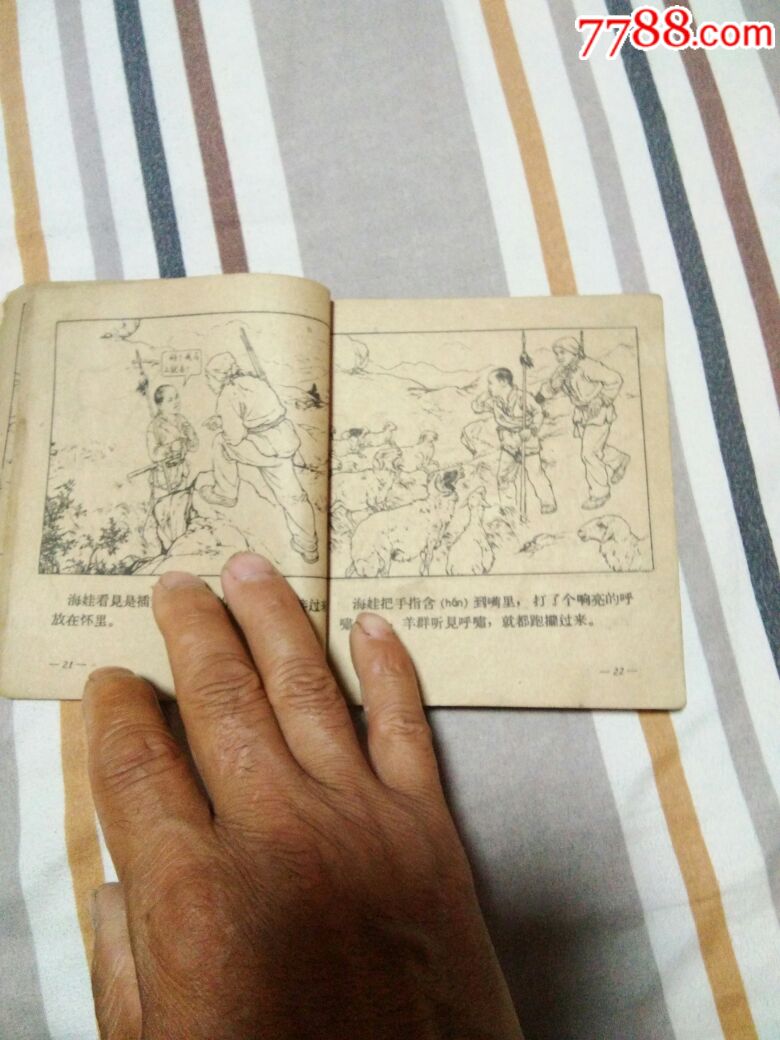 7788.com
好!我马
上就去!
海娃看見是插
过来
放在怀里。
— 21 —
海娃把手指含(hán)到嘴里,打了个响亮的呼
嘯
羊群听見呼嘯,就都跑攏过来。
— 22 —